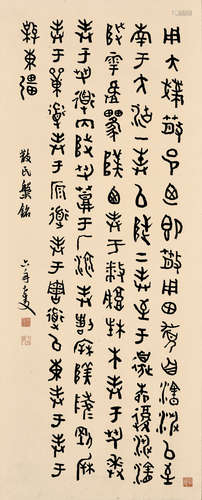 用夨散邑迺即散用田眉自瀗涉以
南至于大沽一封以陟二封至于邊柳復涉瀗
陟雩以西封于播城楮木封于芻逨
封于芻道內陟芻登于厂湶封割柝陵陵剛柝
封于單道封于原道封于周道以東封于
東疆
散氏盤銘
六舟達受